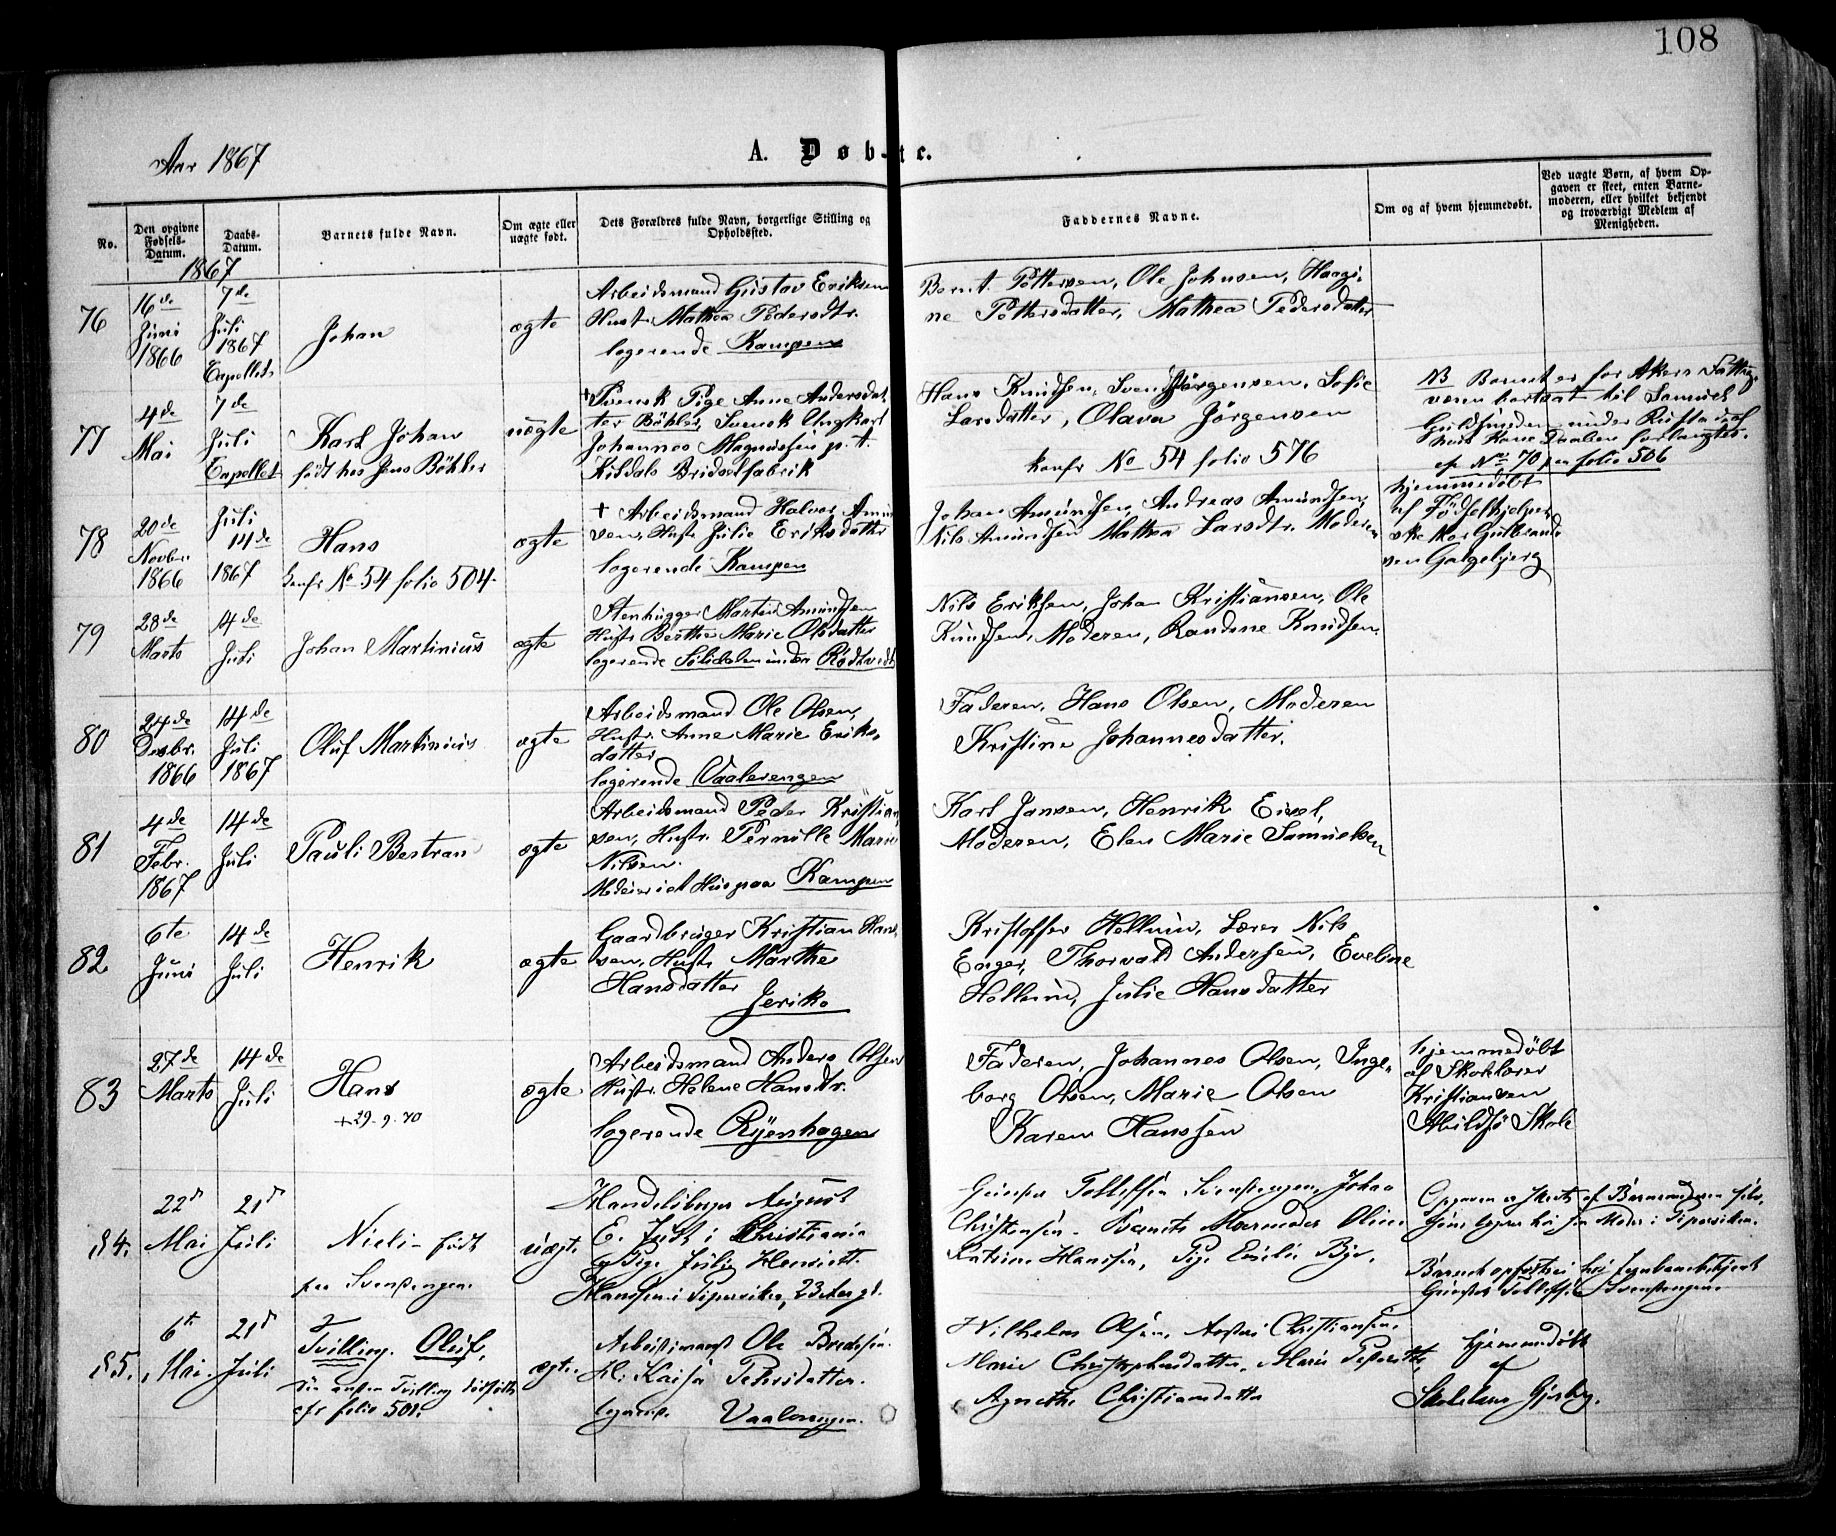 108
Aar 1867
A. Døbte.
No.
Den opgivne Fødsels-Datum.
Daabs-Datum.
Barnets fulde Navn.
Om ægte eller uægte født.
Dets Forældres fulde Navn, borgerlige Stilling og Opholdssted.
Faddernes Navne.
Om og af hvem hjemmedøbt.
Ved uægte Børn, af hvem Opgaven er skeet, enten Barnemoderen, eller hvilket bekjendt og troværdigt Medlem af Menigheden.
1867
76
16de Juni 1866
7de Juli 1867 Capellet
Johan
ægte
Arbeidsmand Gustav Eriksen
Hust. Mathea Pedersdtr.
logerende Kampen
Bernt Pettersen, Ole Johnsen,
ne Pettersdatter, Mathea Pedersdatter
77
4de Mai
7de Juli Capellet
Karl Johan
født hos Jens Böhler
uægte
Svensk Pige Anne Andersdat
ter Böhler, Svensk Ungkarl
Johannes Magnussen p. t.
Fabrik
Hans Knudsen, Svend Jørgensen, Sofie
Larsdatter, Olava Jørgensen
konfr No 54 folio 576
NB Barnet er for Akers Fattig
væsen bortsat til Samuel
cfr No 70 paa folio 506
78
20de Novbr. 1866
Juli 14de 1867
Hans
konfr No 54 folio 504
ægte
+ Arbeidsmand Halvor Amund
sen, Hust. Julie Eriksdatter
logerende Kampen
Johan Amundsen, Andreas Amundsen,
Nils Amundsen Mathea Larsdtr. Moderen
hjemmedøbt
af Fødselhjelper
ske Kar. Gulbrand
sen Galgebjerg
79
28de Marts
14de Juli
Johan Martinius
ægte
Stenhugger Martin Amundsen
Hust. Berthe Marie Olsdatter
logerende under Rødtvedt
Nils Eriksen, Johan Kristiansen, Ole
Knudsen, Moderen, Randine Knudsen
80
24de Desbr. 1866
14de Juli 1867
Oluf Martinius
ægte
Arbeidsmand Ole Olsen,
Hustr. Anne Marie Eriks
datter
logerende Vaalerengen
Faderen, Hans Olsen, Moderen
Kristine Johannesdatter.
81
4de Febr. 1867
14de Juli
Pauli Bertran
ægte
Arbeidsmand Peder Kristian
sen, Hustr. Pernille Marie
Nilsen.
Hus paa Kampen
Karl Jansen, Henrik
Moderen, Elen Marie Samuelsen
82
6te Juni
14de Juli
Henrik
ægte
Gaardbruger Kristian Han
sen, Hust. Marthe
Hansdatter
Jeriko
Kristoffer Hellum, Lærer Nils
Enger, Thorvald Andersen, Eveline
Hellum, Julie Hansdatter
83
27de Marts
14de Juli
Hans
+ 29.9.70
ægte
Arbeidsmand Anders Olsen
Hustr. Helene Hansdtr.
logerende Ryenhagen
Faderen, Johannes Olsen, Inge
borg Olsen, Marie Olsen
Karen Hanssen
hjemmedøbt
af Skolelærer
Kristiansen
Abildsø Skole
84.
22d Mai
21d Juli
født
paa Svensengen.
uægt.
August
E. i Christiania
og Pige Julie Henriette
Hanssen i Pipervika,
Tollefsen Svensengen, Johan
Christensen. Oline
Katrine Hanssen, Pige Emilie
Opgaven er skeet af Barnemoderen selv.
Moder i Pipervika.
Barnet opfostres hos
Tollefsen Svensengen.
85.
6te Mai
21d Juli
Tvilling. Oluf,
Den anden Tvilling dødfødt
cfr folio 501.
ægte.
Arbeidsmand Ole
H. Kaisa Petersdatter.
logerend. Vaalerengen.
Wilhelm Olsen, Christiansen.
Marie Christophersdatter, Marie
Agnethe Christiansdatter
hjemmedøbt
af
Skolelærer